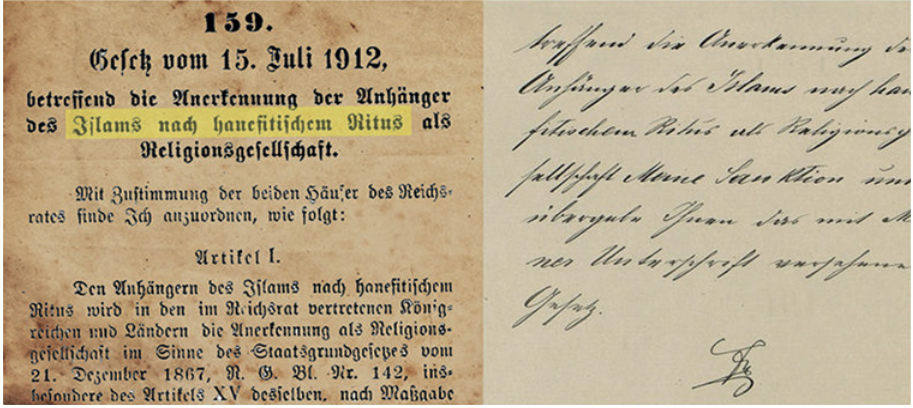 159.
Gesetz vom 15. Juli 1912,
betreffend die Anerkennung der Anhänger
des Islams nach hanefitischem Ritus als
Religionsgesellschaft.
Mit Zustimmung der beiden Häuser des Reichs-
rates finde Ich anzuordnen, wie folgt:
Artikel I.
Den Anhängern des Islams nach hanefitischem
Ritus wird in den im Reichsrat vertretenen König-
reichen und Ländern die Anerkennung als Religions-
gesellschaft im Sinne des Staatsgrundgesetzes vom
21. Dezember 1867, R. G. Bl. Nr. 142, ins-
besondere des Artikels XV desselben, nach Maßgabe
treffend die Anerkennung de
Anhänger des Islams nach han
fitischem Ritus als Religionsg
sellschaft Meine Sanktion un
übergebe Ihnen das mit M
ner Unterschrift versehene
Gesetz.